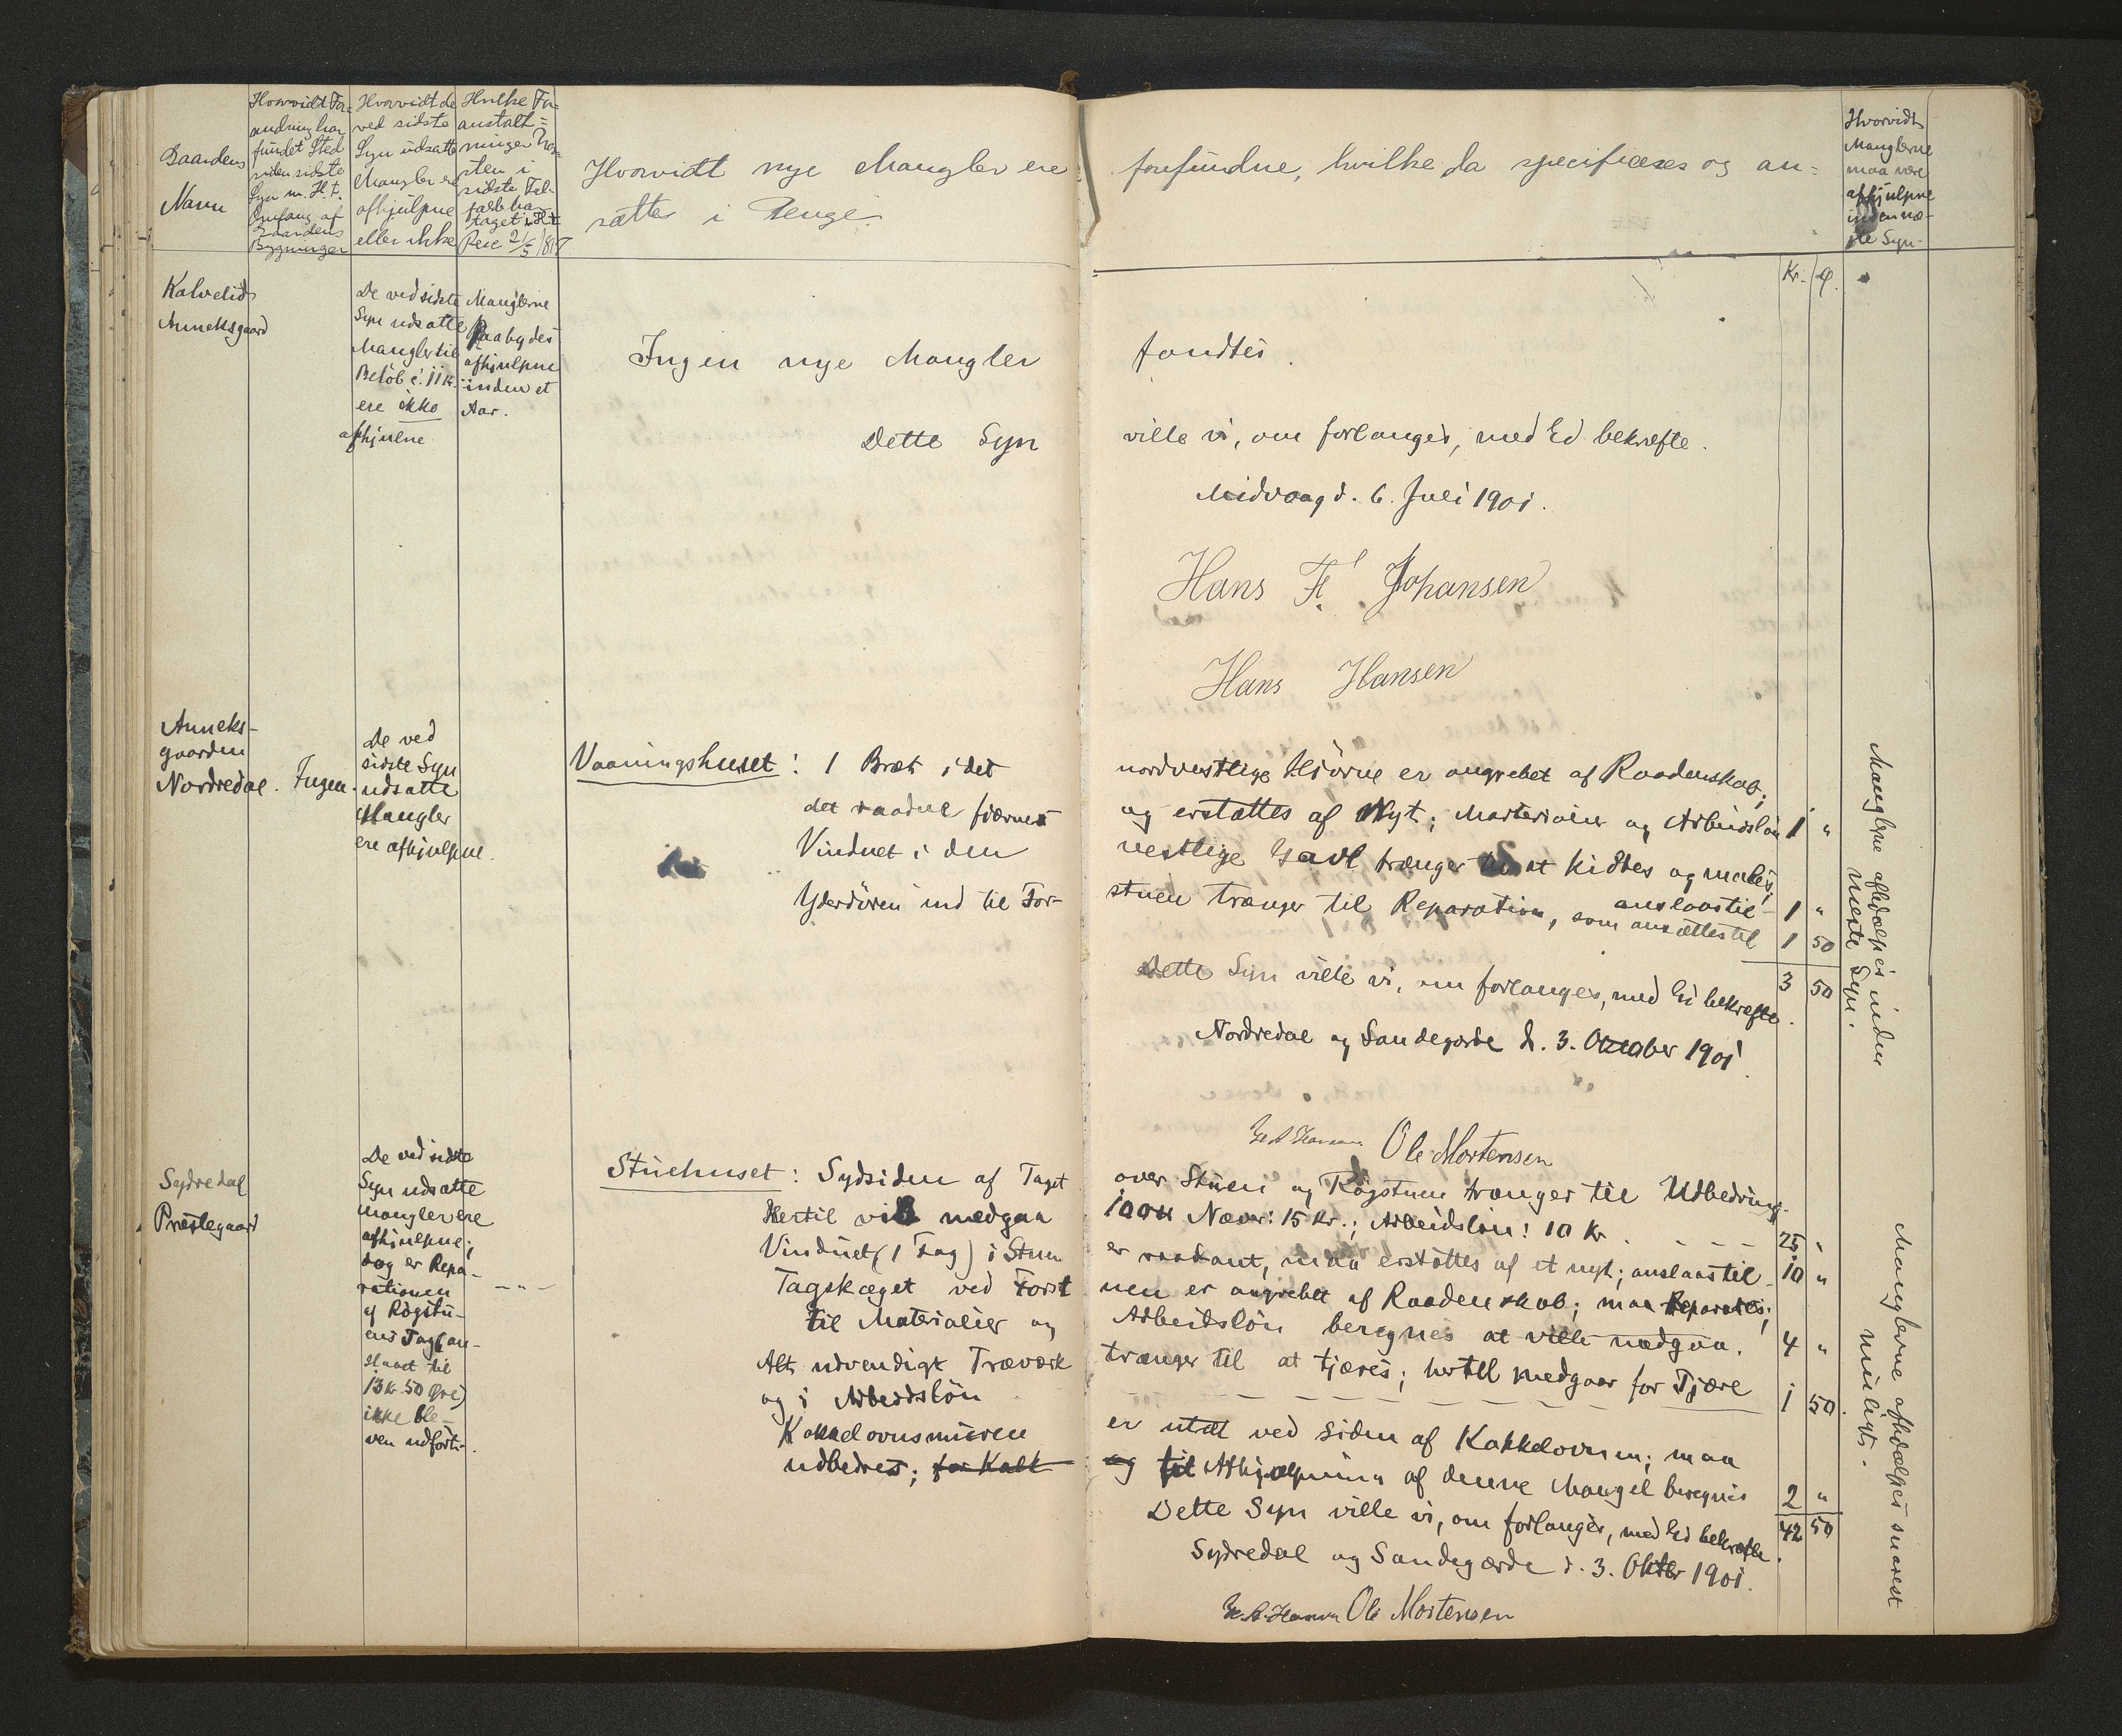 Gaardens
Navn
Hvorvidt For-
andring har
fundet Sted
siden sidste
Syn m. H. t.
Omfang af
Gaardens
Bygninger
Hvorvidt de
ved sidste
Syn udsatte
Mangler ere
afhjulpne
eller ikke
Hvilke For-
anstalt=
ninger Præ-
sten i
sidste Til-
fælde har
taget i H. t.
Resc 2/5 1817
Hvorvidt nye Mangler ere
sættes i Penge.
forefundne, hvilke da specificeres og an=
Hvorvidt
Manglerne
maa være
afhjulpne
inden næ-
ste Syn.
Kr. Ø.
Kalvelids
Anneksgaard
De ved sidste
Syn udsatte
Mangler til
Beløb 11 Kr.
ere ikke
afhjulne
Manglerne
paabydes
afhjulpne
inden et
Aar.
Ingen nye Mangler
fandtes.
Dette Syn
ville vi, om forlanges, med Ed bekræfte.
Midvaag d. 6. Juli 1901.
Hans Fl. Johansen
Hans Hansen
Anneks-
gaarden
Nordredal.
Ingen.
De ved
sidste Syn
udsatte
Mangler
ere afhjulpne.
Vaaningshuset: 1 Bræt i det
nordvestlige Hjörne er angrebet af Raadenskab;
det raadne fjærnes
og erstattes af Nyt; Materialier og Arbeidslön 1 "
Vinduet i den
vestlige Gavl trænger til at kidtes og males;
anslaas til 1 "
Yderdören ind til For-
stuen trænger til Reparation, som ansættes til 1 50
3 50
Manglerne afhjælpes inden
næste Syn.
Dette Syn ville vi, om forlanges, med Ed bekræfte.
Nordredal og Sandegærde d. 3. Oktober 1901.
Ole Mortensen
Sydredal
Præstegaard
De ved sidste
Syn udsatte
Mangler ere
afhjulpne;
dog er Repa-
rationen
af Rögstu-
ens Tag (an-
slaaet til
13 Kr. 50 Øre)
ikke ble-
ven udfört.
- " -
Stuehuset: Sydsiden af Taget
over Stuen og Rögstuen trænger til Udbedring.
Hertil vil medgaa
Næver: 15 Kr.; Arbeidslön: 10 Kr. - - - 25 "
Vinduet (1 Fag) i Stuen
er raadent, maa erstattes af et nyt; anslaas til 10 "
Tagskæget ved Forst
uen er angrebet af Raadenskab; maa Repareres;
til Materialier og
Arbeidslön beregnes at ville medgaa. 4 "
Alt udvendigt Træværk
trænger til at tjæres; hertil medgaar for Tjære
og i Arbeidslön - - - - - - - 1 50.
Kakkelovnsmuren
er utæt ved Siden af Kakkelovnen; maa
udbedres; for Kalk
og til Afhjælpning af denne Mangel beregnes 2 "
42 50
Manglerne afhjælpes snarest
muligt.
Dette Syn ville vi, om forlanges, med Ed bekræfte.
Sydredal og Sandegærde d. 3. Oktbr 1901.
Ole Mortensen